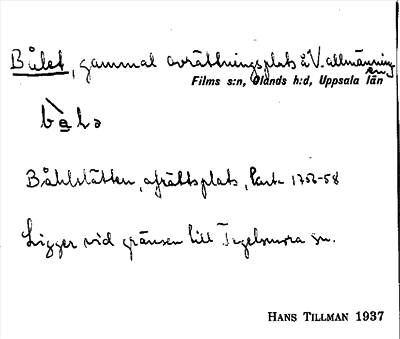 Bålet, gammal avrättningsplats å V. allmänning
en,
Films s:n, Olands h:d, Uppsala län
Båhlstätten, afrättsplats, Lantm 1756-58
Ligger vid gränsen till Tegelsmora sn.
HANS TILLMAN 1937